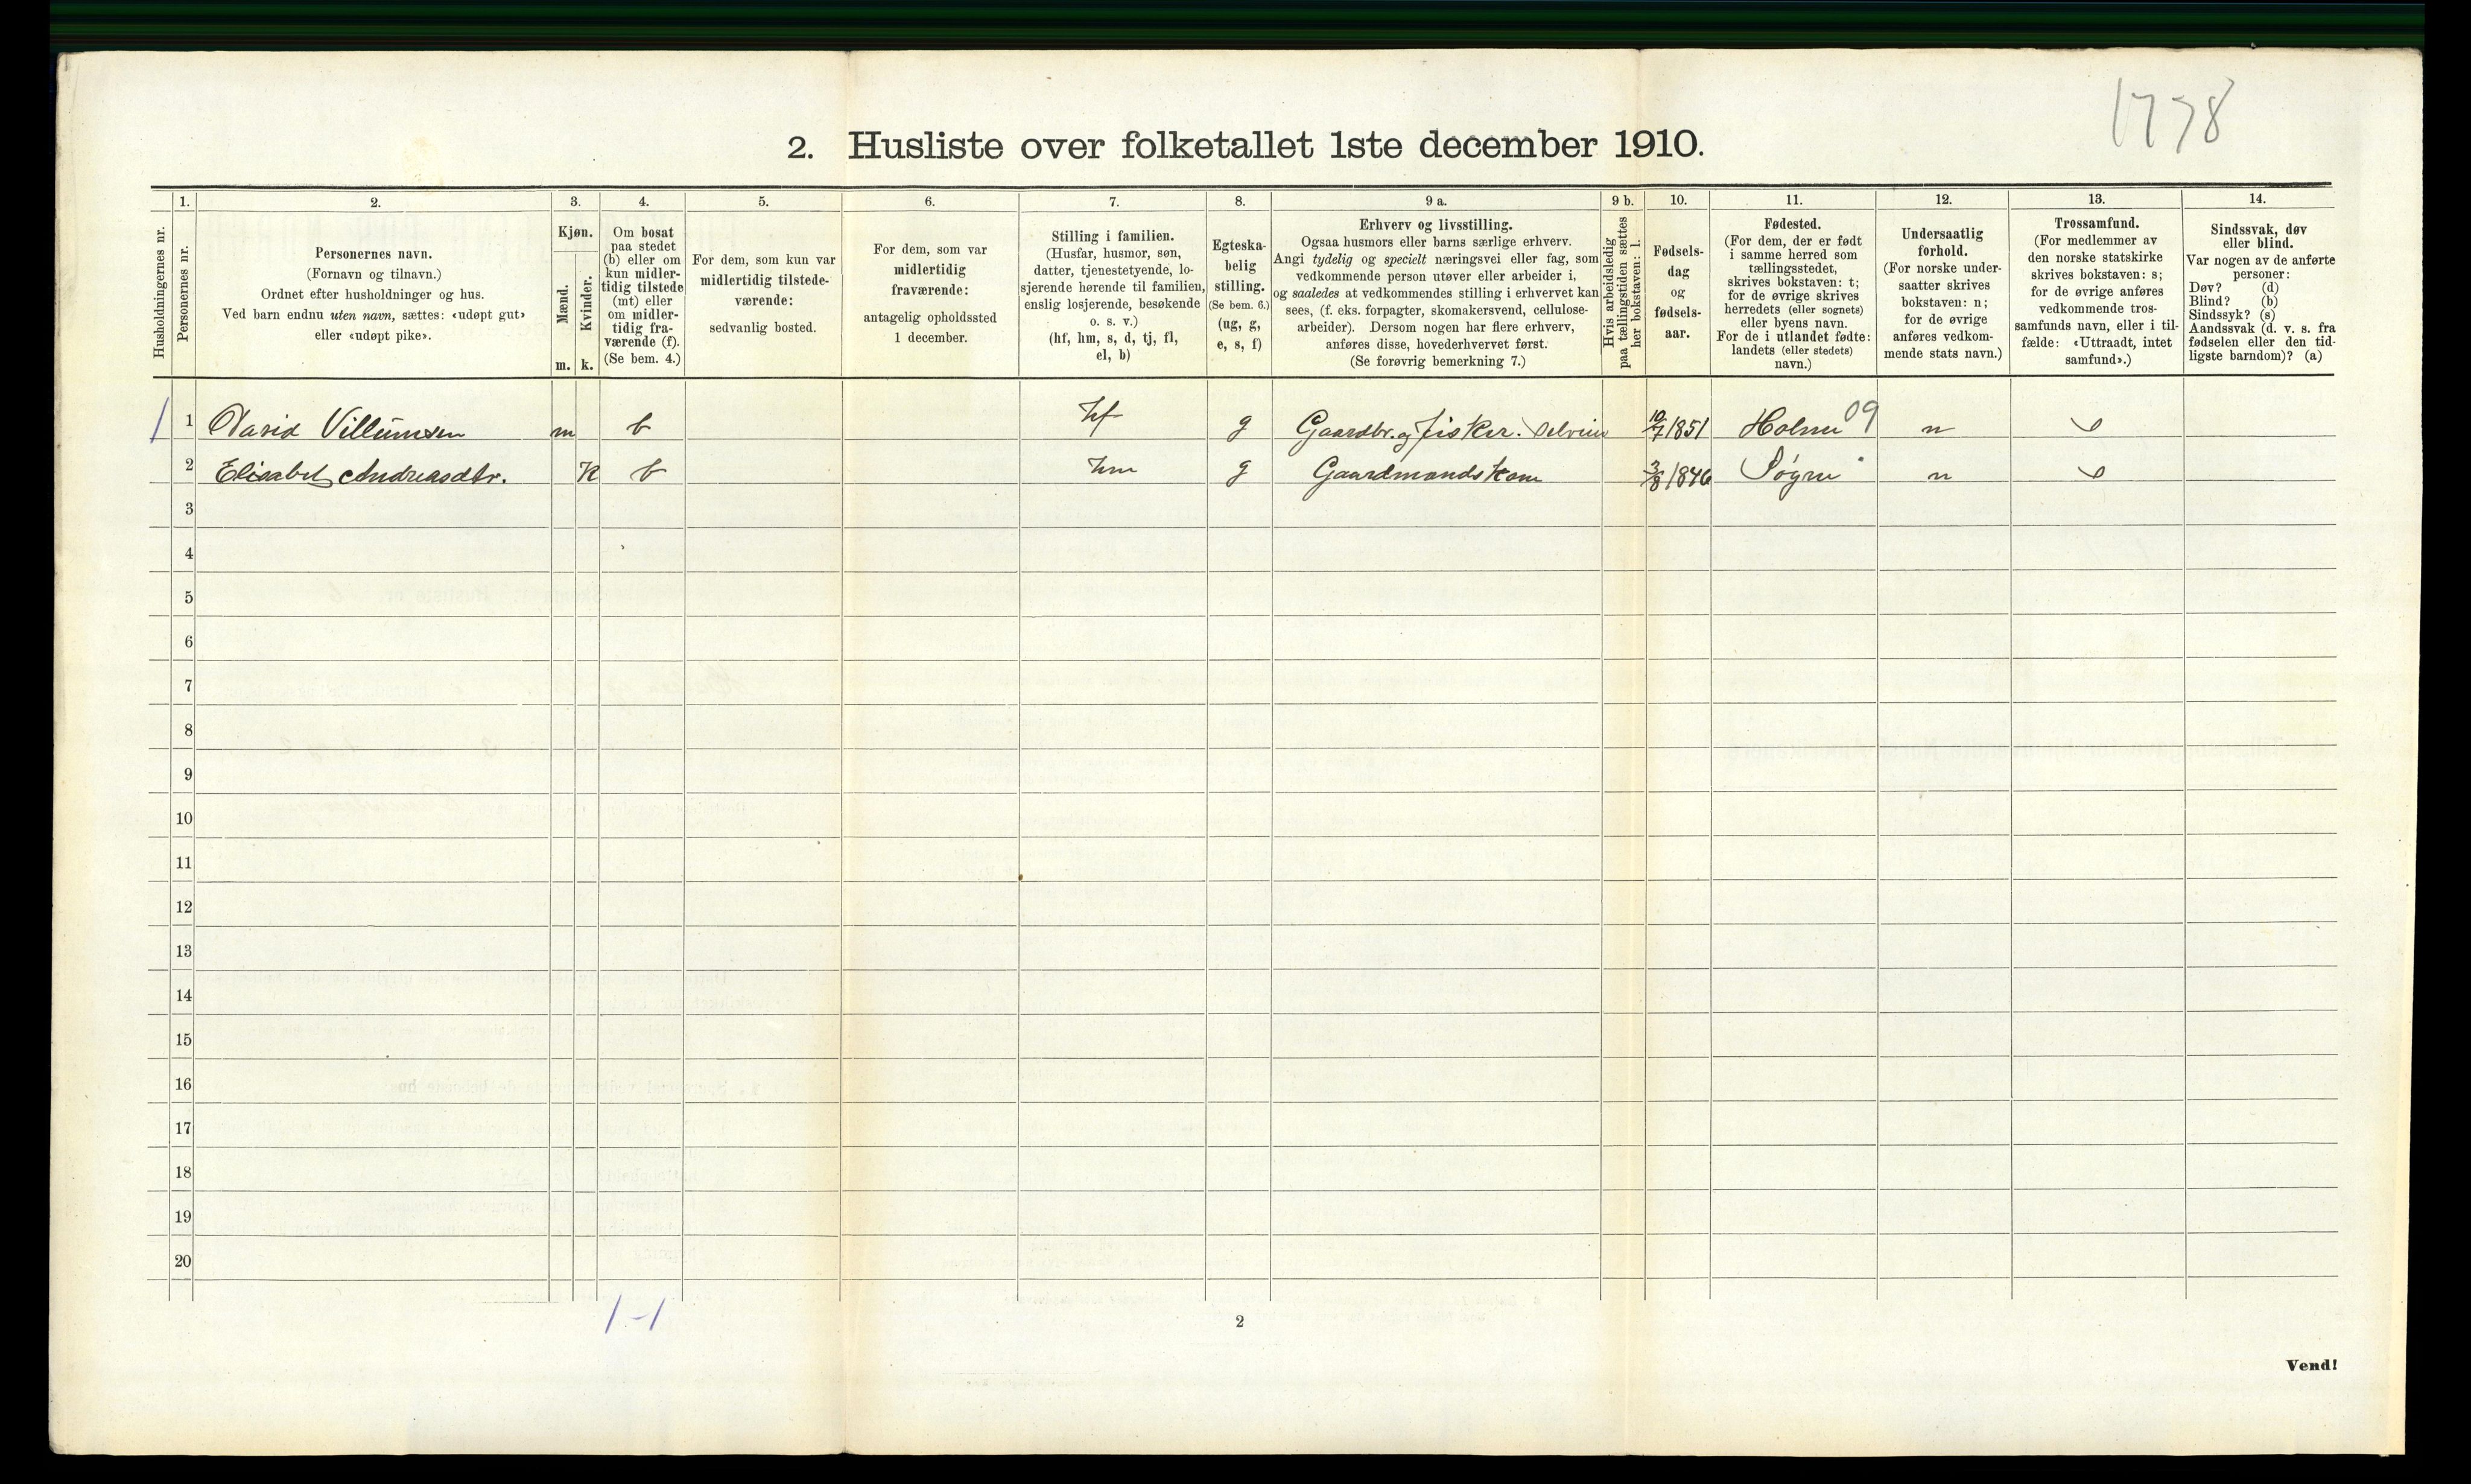 1778
2. Husliste over folketallet 1ste december 1910.
Husholdningernes nr.
1.
Personernes nr.
2.
Personernes navn.
(Fornavn og tilnavn.)
Ordnet efter husholdninger og hus.
Ved barn endnu uten navn, sættes: «udøpt gut»
eller «udøpt pike».
3.
Kjøn.
Mænd.
Kvinder.
m. k.
4.
Om bosat
paa stedet
(b) eller om
kun midler-
tidig tilstede
(mt) eller
om midler-
tidig fra-
værende (f).
(Se bem. 4.)
5.
For dem, som kun var
midlertidig tilstede-
værende:
sedvanlig bosted.
6.
For dem, som var
midlertidig
fraværende:
antagelig opholdssted
1 december.
7.
Stilling i familien.
(Husfar, husmor, søn,
datter, tjenestetyende, lo-
sjerende hørende til familien,
enslig losjerende, besøkende
o. s. v.)
(hf, hm, s, d, tj, fl,
el, b)
8.
Egteska-
belig
stilling.
(Se bem. 6.)
(ug, g,
e, s, f)
9 a.
Erhverv og livsstilling.
Ogsaa husmors eller barns særlige erhverv.
Angi tydelig og specielt næringsvei eller fag, som
vedkommende person utøver eller arbeider i,
og saaledes at vedkommendes stilling i erhvervet kan
sees, (f. eks. forpagter, skomakersvend, cellulose-
arbeider). Dersom nogen har flere erhverv,
anføres disse, hovederhvervet først.
(Se forøvrig bemerkning 7.)
9 b.
Hvis arbeidsledig
paa tællingstiden sættes
her bokstaven: l.
10.
Fødsels-
dag
og
fødsels-
aar.
11.
Fødested.
(For dem, der er født
i samme herred som
tællingsstedet,
skrives bokstaven: t;
for de øvrige skrives
herredets (eller sognets)
eller byens navn.
For de i utlandet fødte:
landets (eller stedets)
navn.)
12.
Undersaatlig
forhold.
(For norske under-
saatter skrives
bokstaven: n;
for de øvrige
anføres vedkom-
mende stats navn.)
13.
Trossamfund.
(For medlemmer av
den norske statskirke
skrives bokstaven: s;
for de øvrige anføres
vedkommende tros-
samfunds navn, eller i til-
fælde: «Uttraadt, intet
samfund».)
14.
Sindssvak, døv
eller blind.
Var nogen av de anførte
personer:
Døv? (d)
Blind? (b)
Sindssyk? (s)
Aandssvak (d. v. s. fra
fødselen eller den tid-
ligste barndom)? (a)
1 1 David Villumsen m b hf g Gaardbr. og fisker. Selveier 10/7 1851 Holme 09 n s
2 Elisabet Andreasdtr. K b hm g Gaardmandskone 3/8 1846 Søgne n s
3
4
5
6
7
8
9
10
11
12
13
14
15
16
17
18
19
20
1-1
2
Vend!